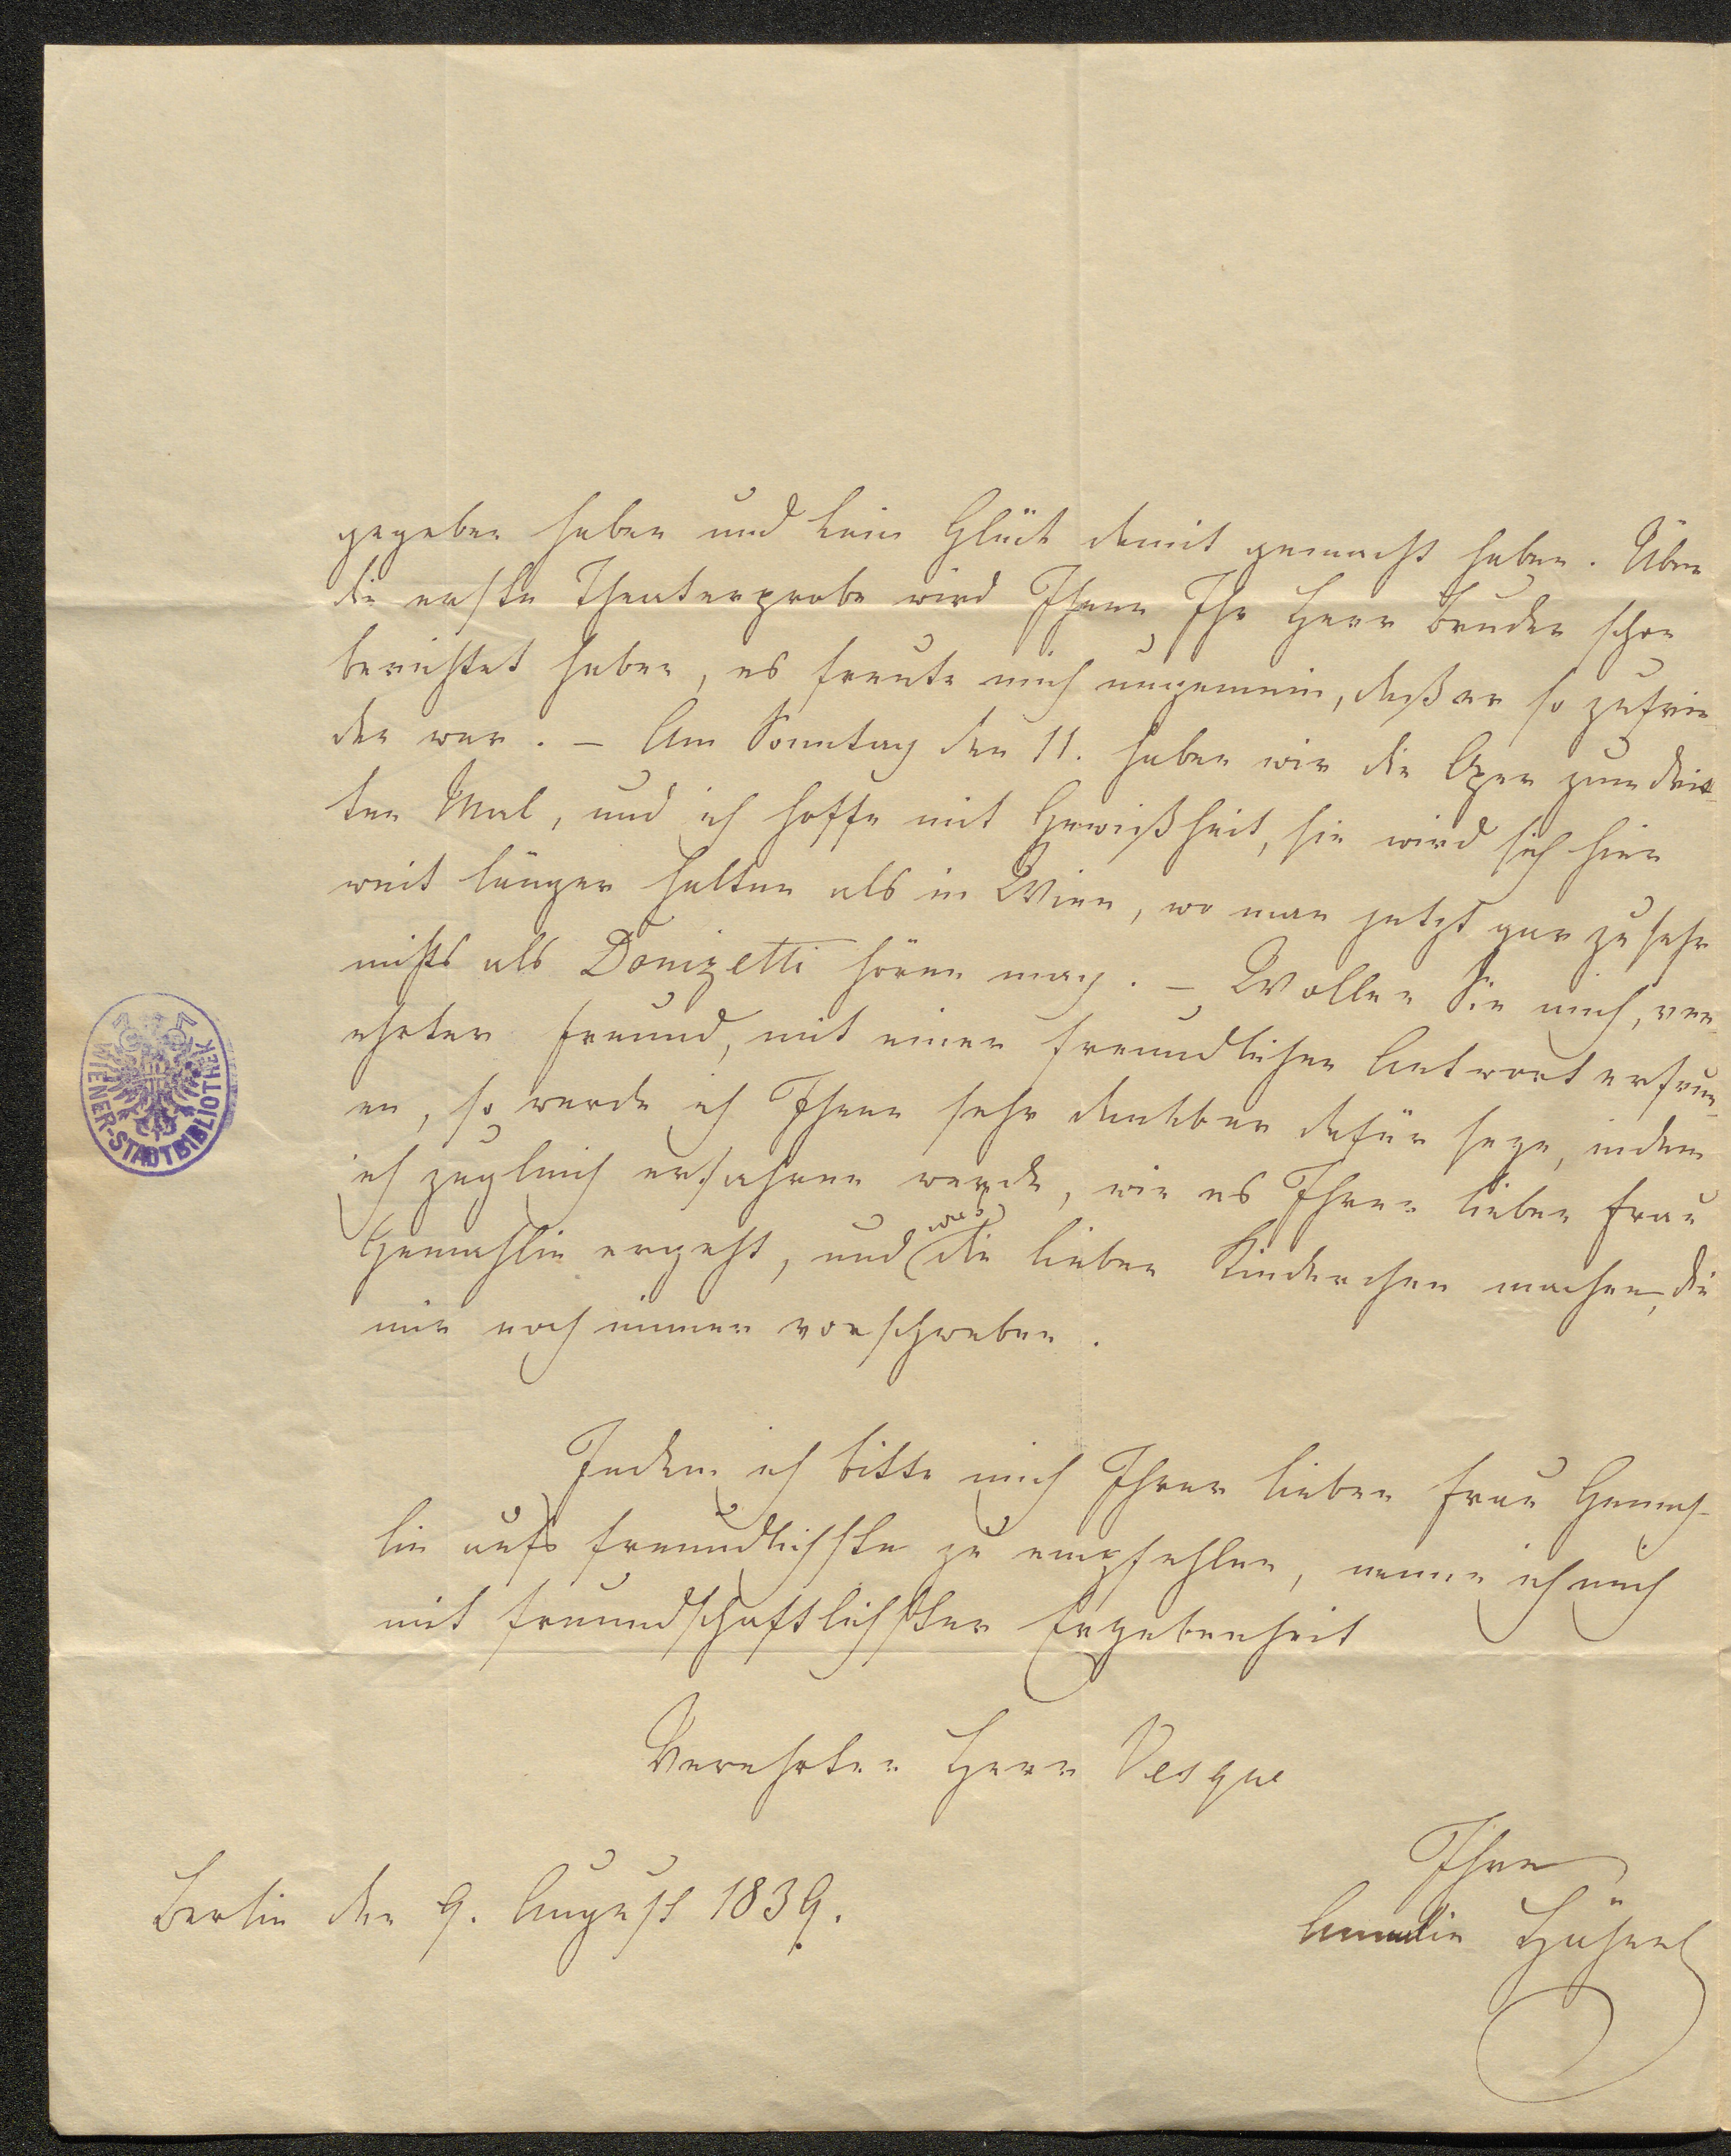 gegeben haben und kein Glück damit gemacht haben. Über
die erste Theaterprobe wird Ihnen Ihr Herr Bruder schon
berichtet haben, es freute mich ungemein, daß er so zufrie-
den war. – Am Sonntag den 11. haben wir die Oper zum drit-
ten Mal, und ich hoffe mit Gewißheit, sie wird sich hier
weit länger halten als in Wien, wo man jetzt gar zu sehr
nichts als Donizetti hören mag. – Wollen Sie mich, ver-
ehrter Freund, mit einer freundlichen Antwort erfreu-
en, so werde ich Ihnen sehr dankbar dafür seyn, indem
ich zugleich erfahren werde, wie es Ihrer lieben Frau
Gemahlin ergeht, und was die lieben Kinderchen machen, die
mir noch immer vorschweben.
Indem ich bitte mich Ihrer lieben Frau Gemah-
lin aufs freundlichste zu empfehlen, nenne ich mich
mit freundschaftlichster Ergebenheit
Verehrter Herr Vesque
Ihre
Berlin den 9. August 1839.
Amalie Hähnel
WIENER-STADTBIBLIOTHEK